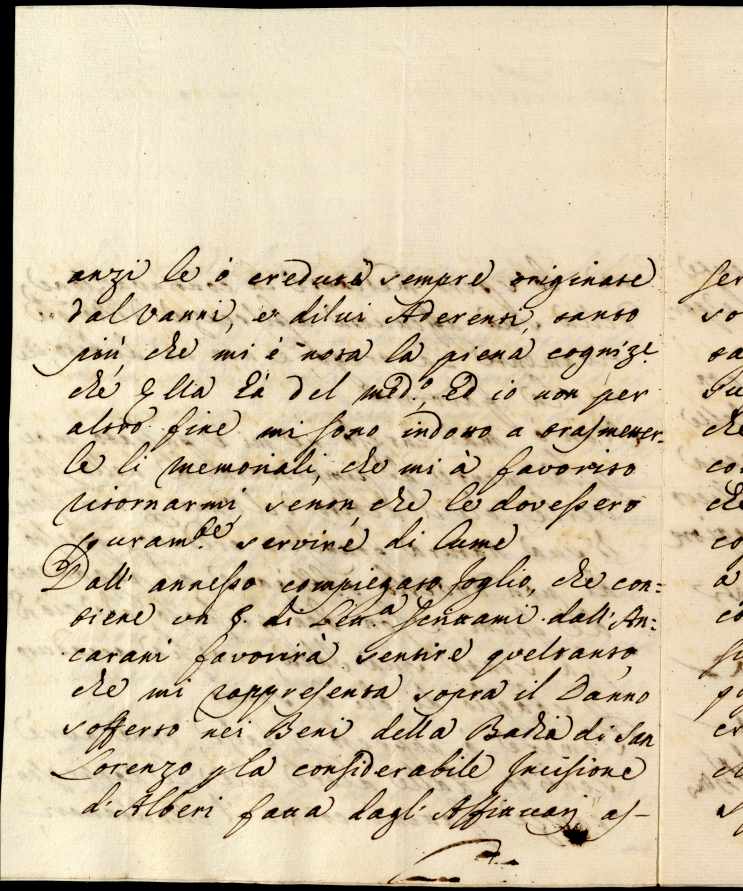 anzi le ò credute sempre originate
dal Vanni, e di lui Aderenti, tanto
più che mi è nota la piena cognize.
che Ella à del medo. Ed io non per
altro fine mi sono indotto a trasmetter-
le li memoriali, che mi à favorito
ritornarmi, senon che le dovessero
puramte. servire di lume
Dall' annesso compiegato foglio, che con=
tiene un §. di Letta. scrittami dall' An=
carani favorirà sentire quel tanto,
che mi rappresenta sopra il Danno
sofferto nei Beni della Badia di San
Lorenzo p la considerabile Incisione
d'Alberi fatta dagl' Affittuarj as-